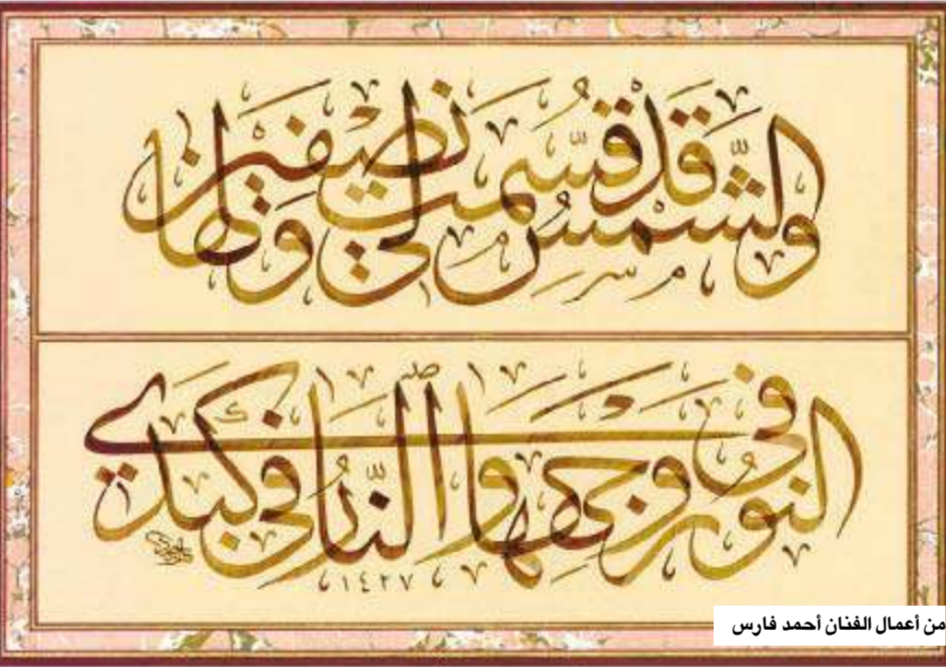 والشمس قد قسّمت نصفين لي ولها
النور في وجهها والنّار في كبدي
١٤٢٧
من أعمال الفنان أحمد فارس